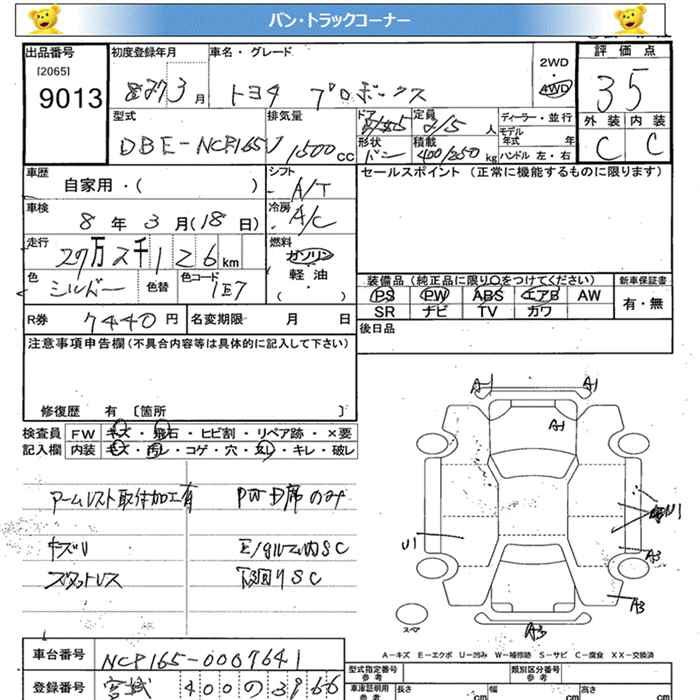 バン・トラックコーナー
出品番号 初度登録年月 車名・グレード 評価点
[2065]
9013
3 月 トヨタ プロボックス
2WD
4WD
35
型式 排気量 ドア 定員 ディーラー・並行 外装 内装
DBE-NCP165V 1500 cc
2/5 人
モデル年式 年
形状 積載
バン 400/250 kg
ハンドル 左・右
C C
車歴 シフト セールスポイント (正常に機能するものに限ります)
自家用・( ) A/T
車検 冷房
8 年 3 月 (18 日) A/C
走行 燃料
27万2千126 km
ガソリン
軽・油
( ・ )
色 シルバー 色替 色コード 1E7
装備品 (純正品に限り○をつけてください) 新車保証書
PS PW ABS エアB AW 有・無
SR ナビ TV カワ
R券 7440 円 名変期限 月 日
後日品
注意事項申告欄 (不具合内容等は具体的に記入して下さい)
修復歴 有 [箇所 ]
検査員 FW キズ・飛石・ヒビ割・リペア跡・×要
記入欄 内装 キズ・汚レ・コゲ・穴・スレ・キレ・破レ
アームレスト取付加工有 PWD席のみ
キズU
スタットレス 下回りSC
A1 A1
A1
U1
A3
A3
A3
スペア
A-キズ E-エクボ U-凹み W-補修跡 S-サビ C-腐食 XX-交換済
車台番号 NCP165-0007641
型式指定番号 類別区分番号
参考
登録番号 宮城 400 の 3966
車庫証明用 参考 長さ cm 幅 cm 高さ cm